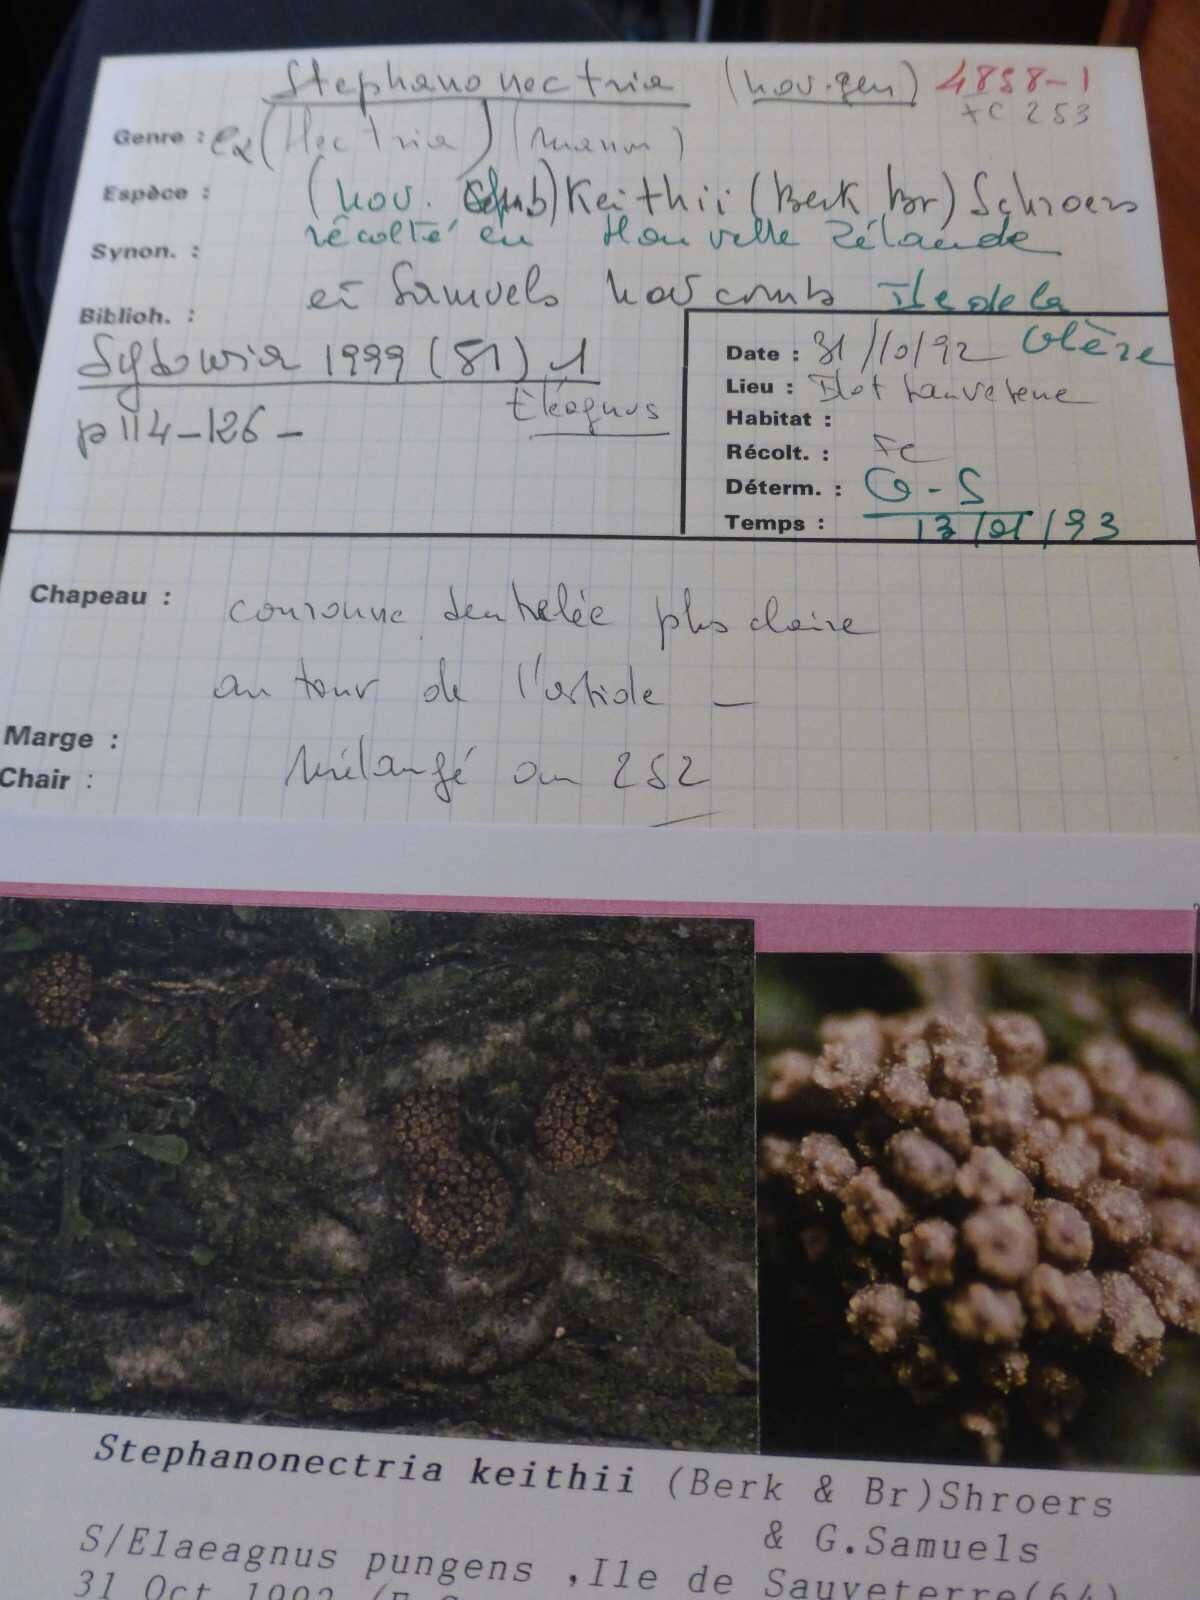 Stephanonectria (nov.gen) 4858-1
FC 253
Genre : ex (Nectria)
Espèce : (nov. comb) Keithii (Berk Br) Schroers
récolté en Nouvelle Zélande
Synon. :
et Samuels nov comb Ile de la
Biblioh. :
Sydowia 1999 (51) 1
Eléagnus
p 114-126 -
Date : 31/10/92
Lieu : Ilot Sauveterre
Habitat :
Récolt. : FC
Déterm. : G-S
Temps : 13/01/93
Chapeau : couronne dentelée plus claire
autour de l'ostiole -
Marge :
Chair : Mélangé au 252
Stephanonectria keithii (Berk & Br)Shroers
& G.Samuels
S/Elaeagnus pungens ,Ile de Sauveterre(64)
31 Oct 1992